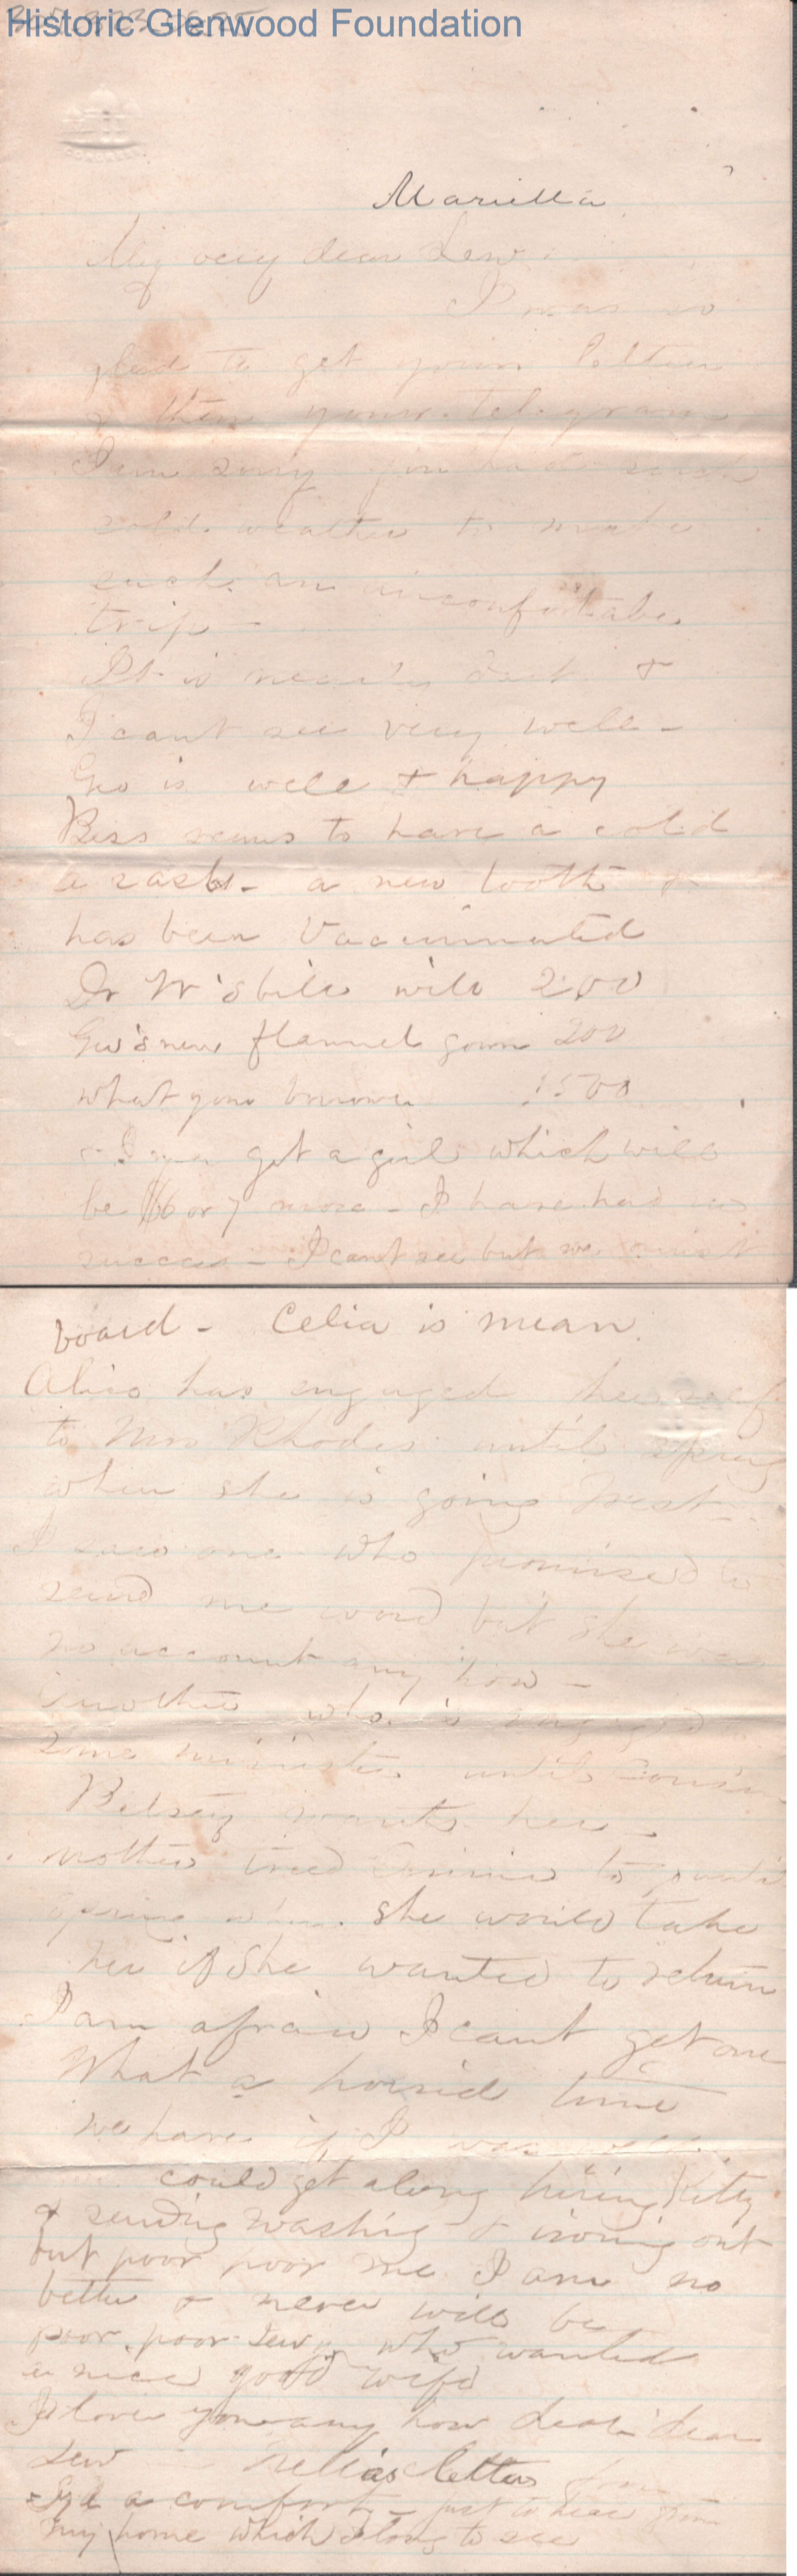 Historic Glenwood Foundation
CONGRESS
Marietta
My very dear Lew.
I was so
glad to get your letter
& then your telegram
I am sorry you had such
cold weather to make
such an uncomfortable
trip -
It is nearly dark &
I cant see very well -
Geo is well & happy
Bess seems to have a cold
a rash - a new tooth &
has been Vaccinated
Dr W's bill will 2.00
Geo's new flannel gown 200
what you borrow 15 00
I can get a girl which will
be $6 or 7 more - I have had no
success - I cant see but we must
board - Celia is mean.
Alice has engaged herself
to Mrs Rhodes until spring
when she is going West -
I saw one who promised to
send me word but she was
no account any how -
Another who is engaged
some minister until Cousin
Betsey wants her -
Mother tried to
spring when she would take
her if she wanted to return
I am afraid I cant get one
What a horrid time
we have if I was well
could get along hiring Kitty
& sending washing & ironing out
but poor poor me I am no
better & never will be
poor, poor Lew who wanted
a nice good wife
I love you any how dear dear
Lew - Nellias letters from
a comfort - just to hear from
my home which I long to see